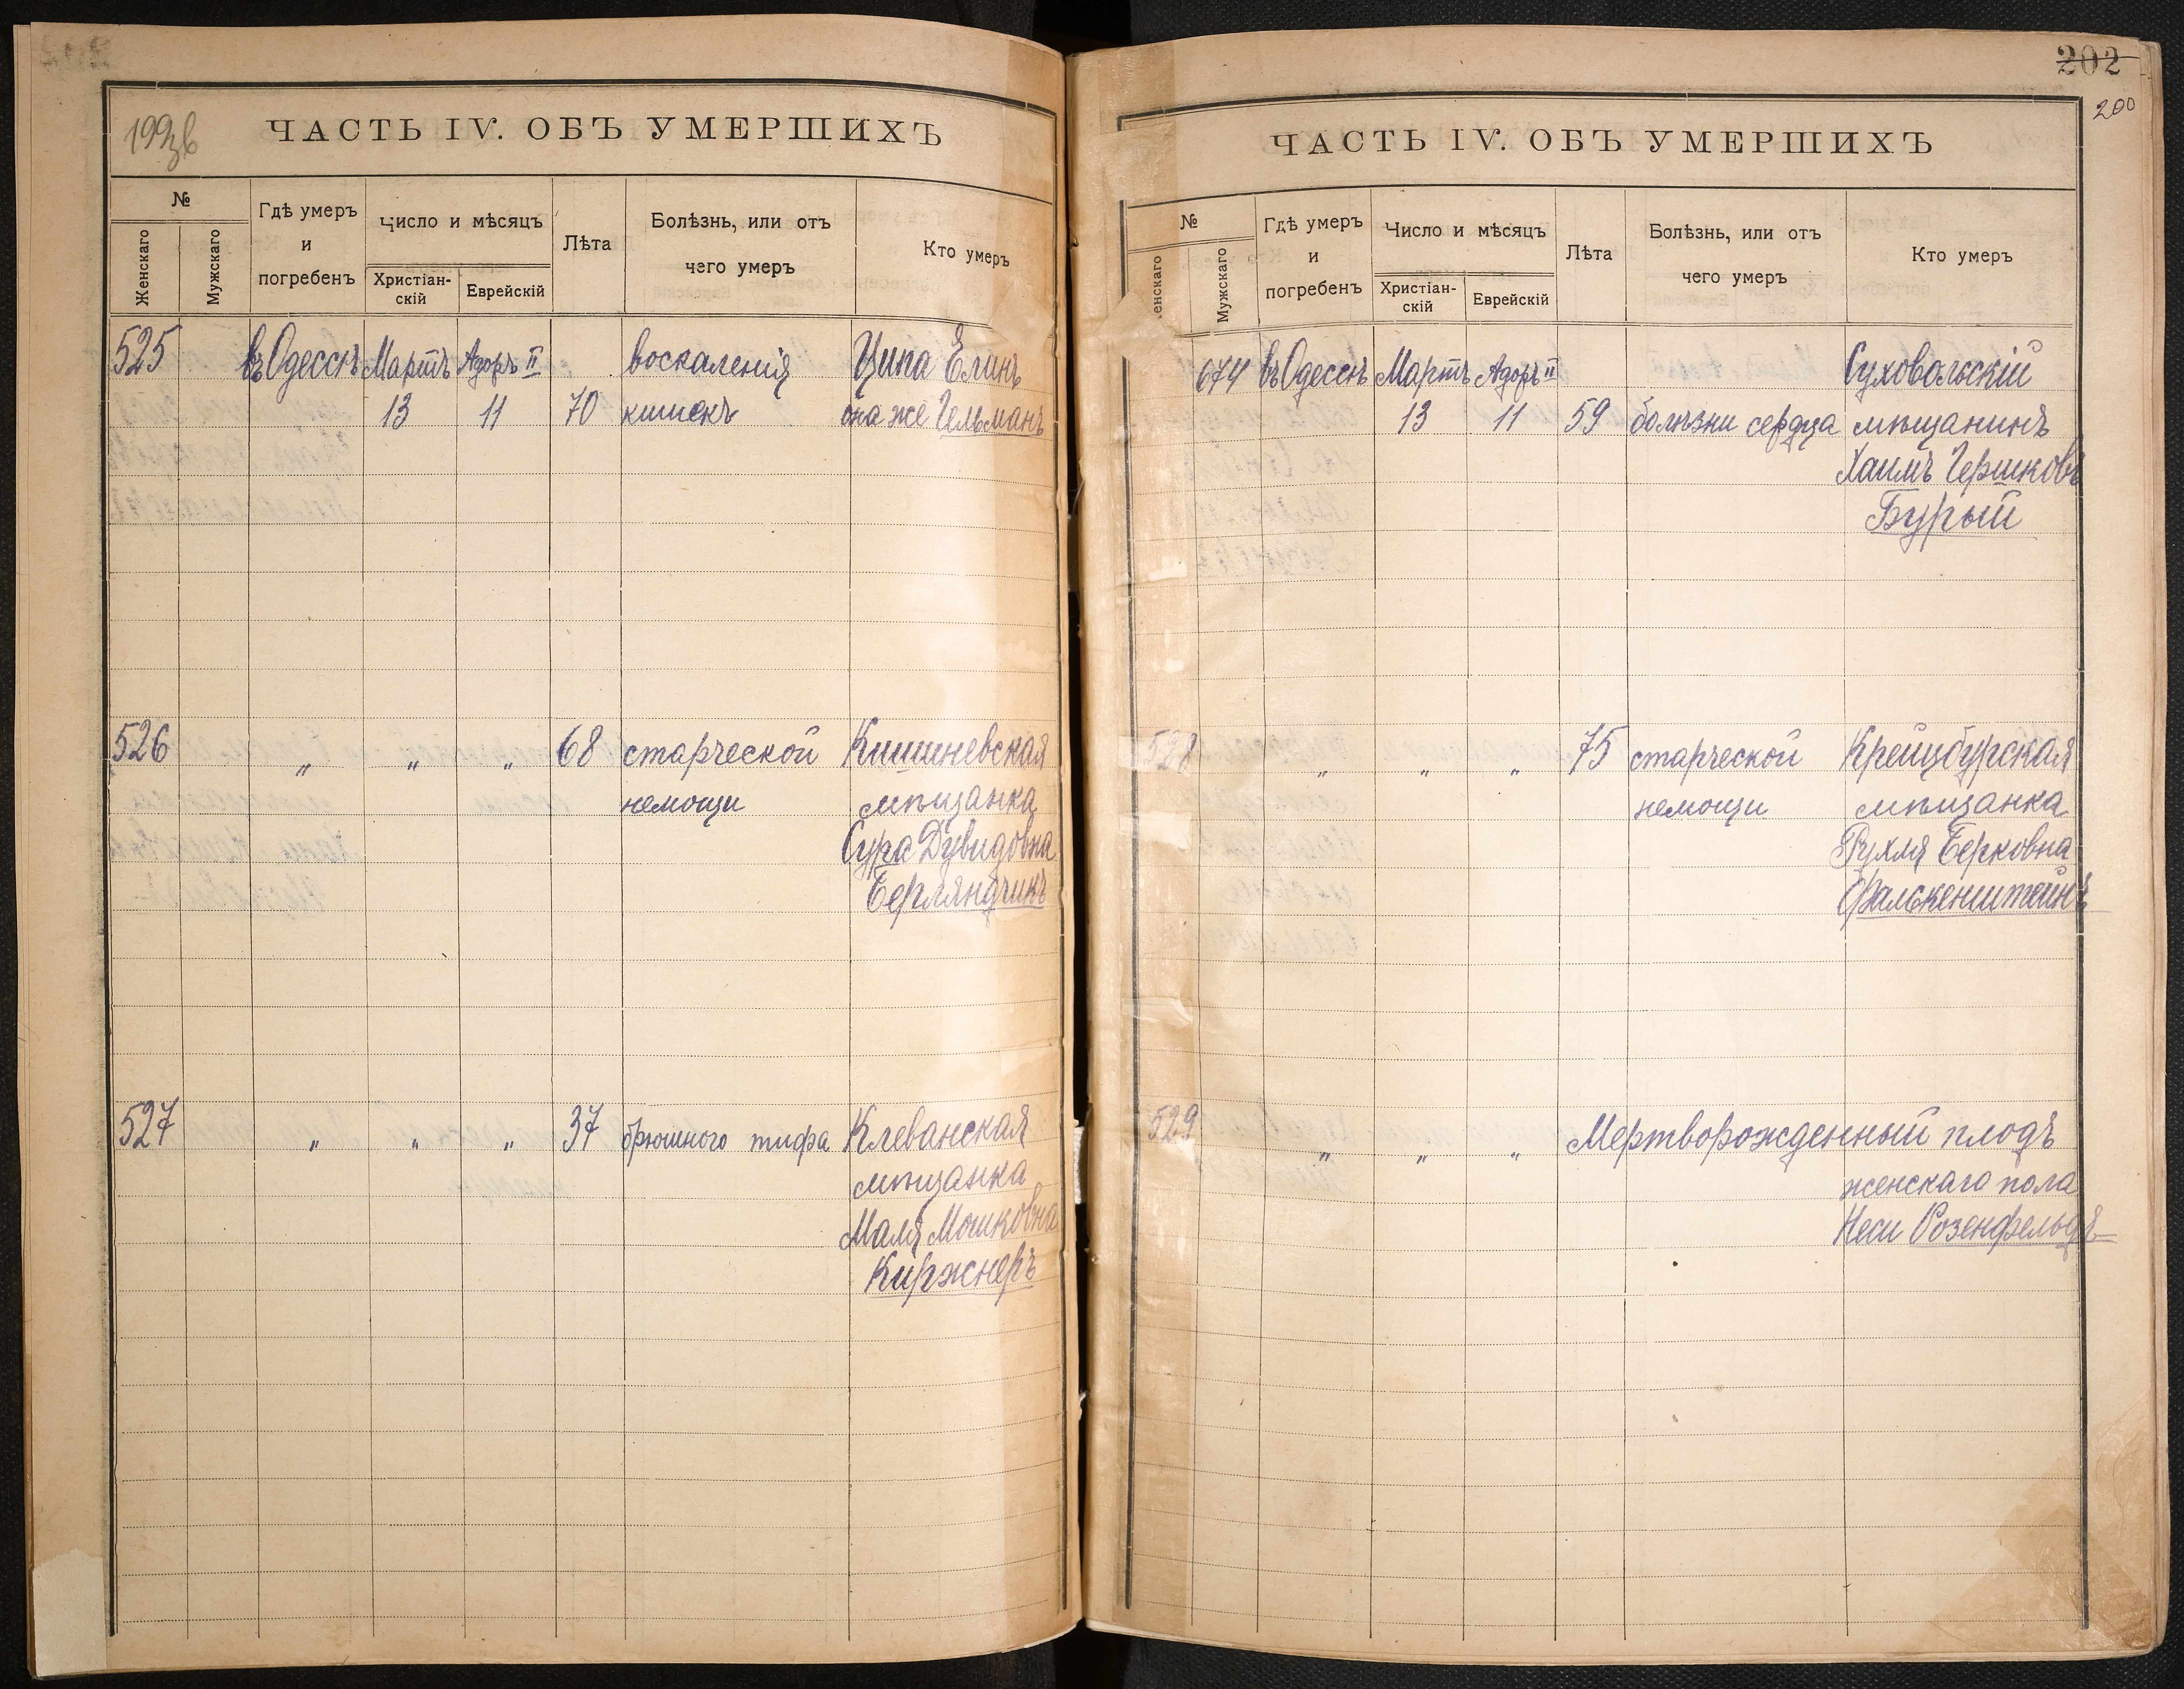 199зв
ЧАСТЬ IV. ОБЪ УМЕРШИХЪ
№
Женскаго
Мужскаго
Гдѣ умеръ
и
погребенъ
Число и мѣсяцъ
Христіан-
скій
Еврейскій
Лѣта
Болѣзнь, или отъ
чего умеръ
Кто умеръ
525 въ Одессѣ Мартъ Адоръ II воспаленія Ципа Елинъ
13 11 70 кишекъ она же Гельманъ
526 „ „ „ 68 старческой Кишиневская
немощи мѣщанка
Сура Дувидовна
Берляндчикъ
527 „ „ „ 37 брюшного тифа Клеванская
мѣщанка
Маля Мошковна
Киржнеръ
202
200
ЧАСТЬ IV. ОБЪ УМЕРШИХЪ
№
енскаго
Мужскаго
Гдѣ умеръ
и
погребенъ
Число и мѣсяцъ
Христіан-
скій
Еврейскій
Лѣта
Болѣзнь, или отъ
чего умеръ
Кто умеръ
674 въ Одессѣ Мартъ Адоръ II Суховольскій
13 11 59 болѣзни сердца мѣщанинъ
Хаимъ Гершковъ
Бурый
528 „ „ „ 75 старческой Крейцбурская
немощи мѣщанка
Рухля Берковна
Фалькенштейнъ
529 „ „ „ Мертворожденный плодъ
женскаго пола
Неси Розенфельдъ